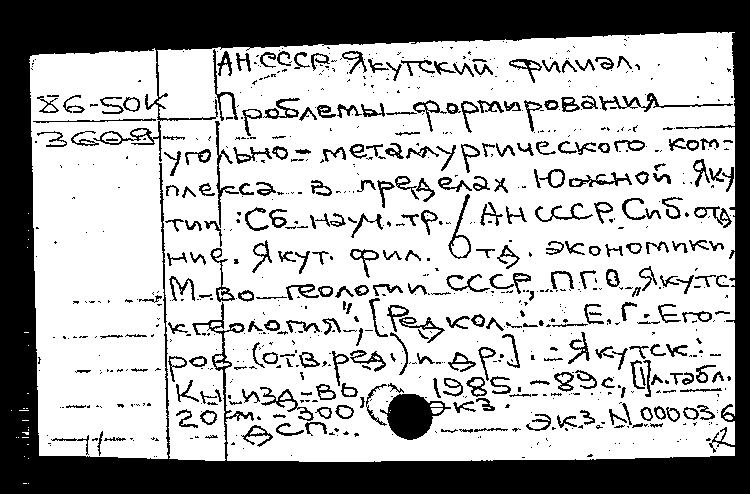 АН СССР Якутский филиал.
86-50К
Проблемы формирования
3609
угольно-металлургического ком-
плекса в пределах Южной Яку
тии : Сб. науч. тр. / АН СССР. Сиб. отд-
ние. Якут. фил. Отд. экономики,
М-во геологии СССР, ПГО "Якутс-
кгеология"; [Редкол.: ... Е.Г. Его-
ров (отв. ред.) и др.]. - Якутск:
Кн. изд-во, 1985. - 89с, [1]л.табл.
20 см. - 300 экз.
ДСП... экз. N 000036